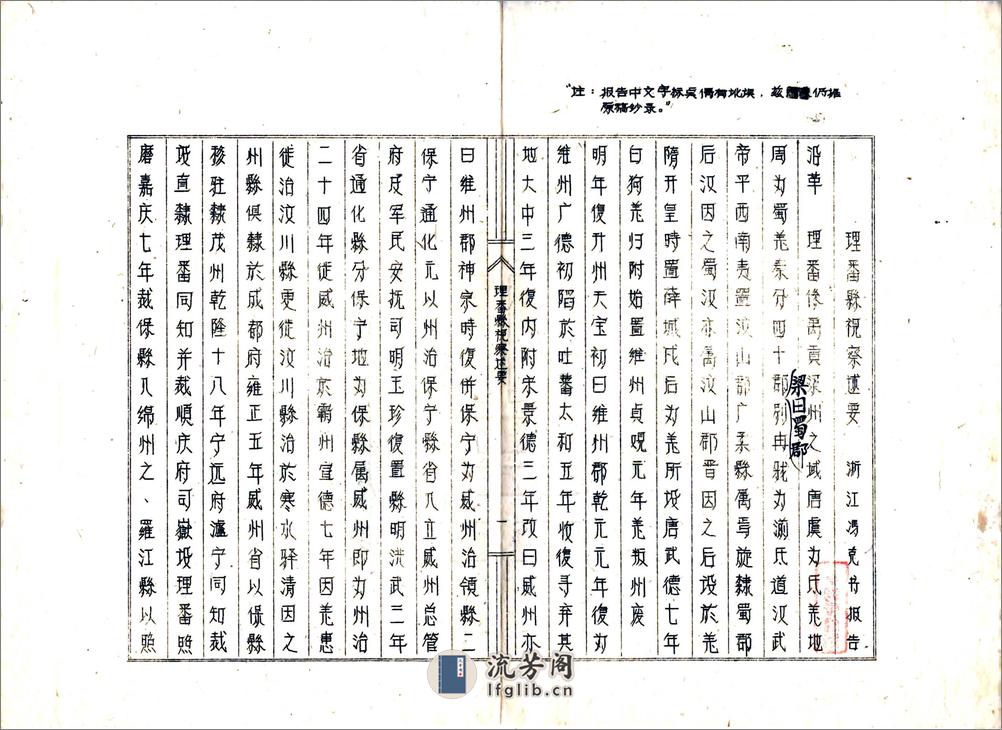 "注：报告中文字标点偶有讹误，兹仍准
原稿钞录。"
理番縣視察述要　浙江馮克书报告
沿革　理番係禹貢梁州之域唐虞为氐羌地
周为蜀羌秦分四十郡别冉駹为湔氐道汉武
梁曰蜀郡
帝平西南夷置汶山郡广柔縣属焉旋隸蜀郡
后汉因之蜀汉亦属汶山郡晋因之后没於羌
隋开皇時置薛城戍后为羌所没唐武德七年
白狗羌归附始置维州贞观元年羌叛州废
明年復升州天宝初曰维州郡乾元元年復为
维州广德初陷於吐蕃太和五年收復寻弃其
地大中三年復内附宋景德三年改曰威州亦
理番縣視察述要
一
曰维州郡神宗時復併保宁为威州治領縣二
保宁通化元以州治保宁縣省入立威州总管
府及军民安抚司明玉珍復置縣明洪武三年
省通化縣分保宁地为保縣属威州即为州治
二十四年徙威州治於霸州宣德七年因羌患
徙治汶川縣更徙汶川縣治於寒水驿清因之
州縣俱隸於成都府雍正五年威州省以保縣
移驻隸茂州乾隆十八年宁远府瀘宁同知裁
设直隸理番同知并裁順庆府司嶽设理番照
磨嘉庆七年裁保縣入绵州之、羅江縣以照
流芳阁
lfglib.cn